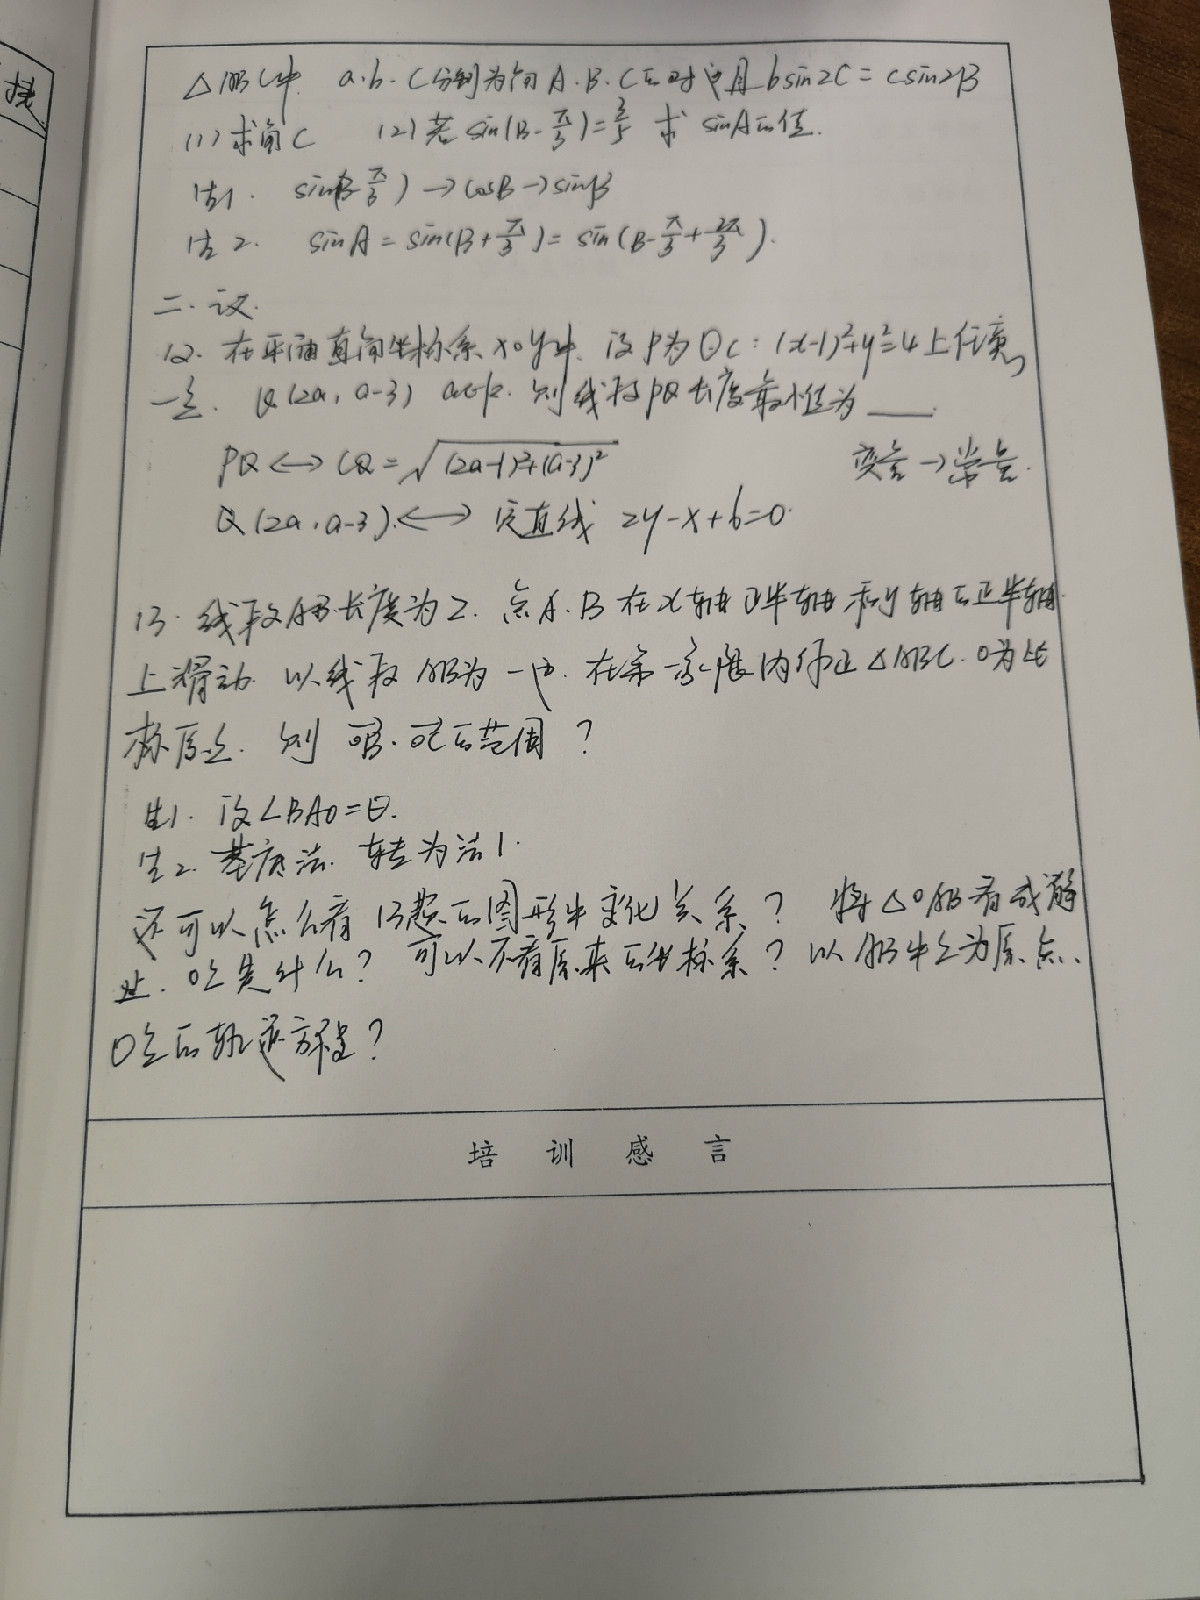 接
△ABC中, a.b.c分别为角A.B.C的对边且bsin2C=csin2B
(1) 求角C (2) 若sin(B-π/3)=3/5 求 sinA的值.
法1. sin(B-π/3) → cosB → sinB
法2. sinA = sin(B+π/3) = sin(B-π/3+2π/3).
二.议.
12. 在平面直角坐标系xoy中, 设P为⊙C: (x-1)²+y²=4上任意
一点. Q(2a, a-3) a∈R. 则线段PQ长度最小值为____.
PQ ↔ CQ = √(2a-1)²+(a-3)² 变量→常量.
Q(2a, a-3). ↔ 定直线 2y-x+6=0.
13. 线段AB长度为2. 点A.B在x轴正半轴和y轴的正半轴
上滑动. 以线段AB为一边. 在第一象限内作正△ABC. O为坐
标原点. 则 OB·OC的范围?
生1. 设∠BAO=θ.
生2. 基底法. 转为法1.
还可以怎么看13题的图形中变化关系? 将△OAB看成静
止. O点是什么? 可以不看原来的坐标系? 以AB中点为原点.
O点的轨迹方程?
培训感言